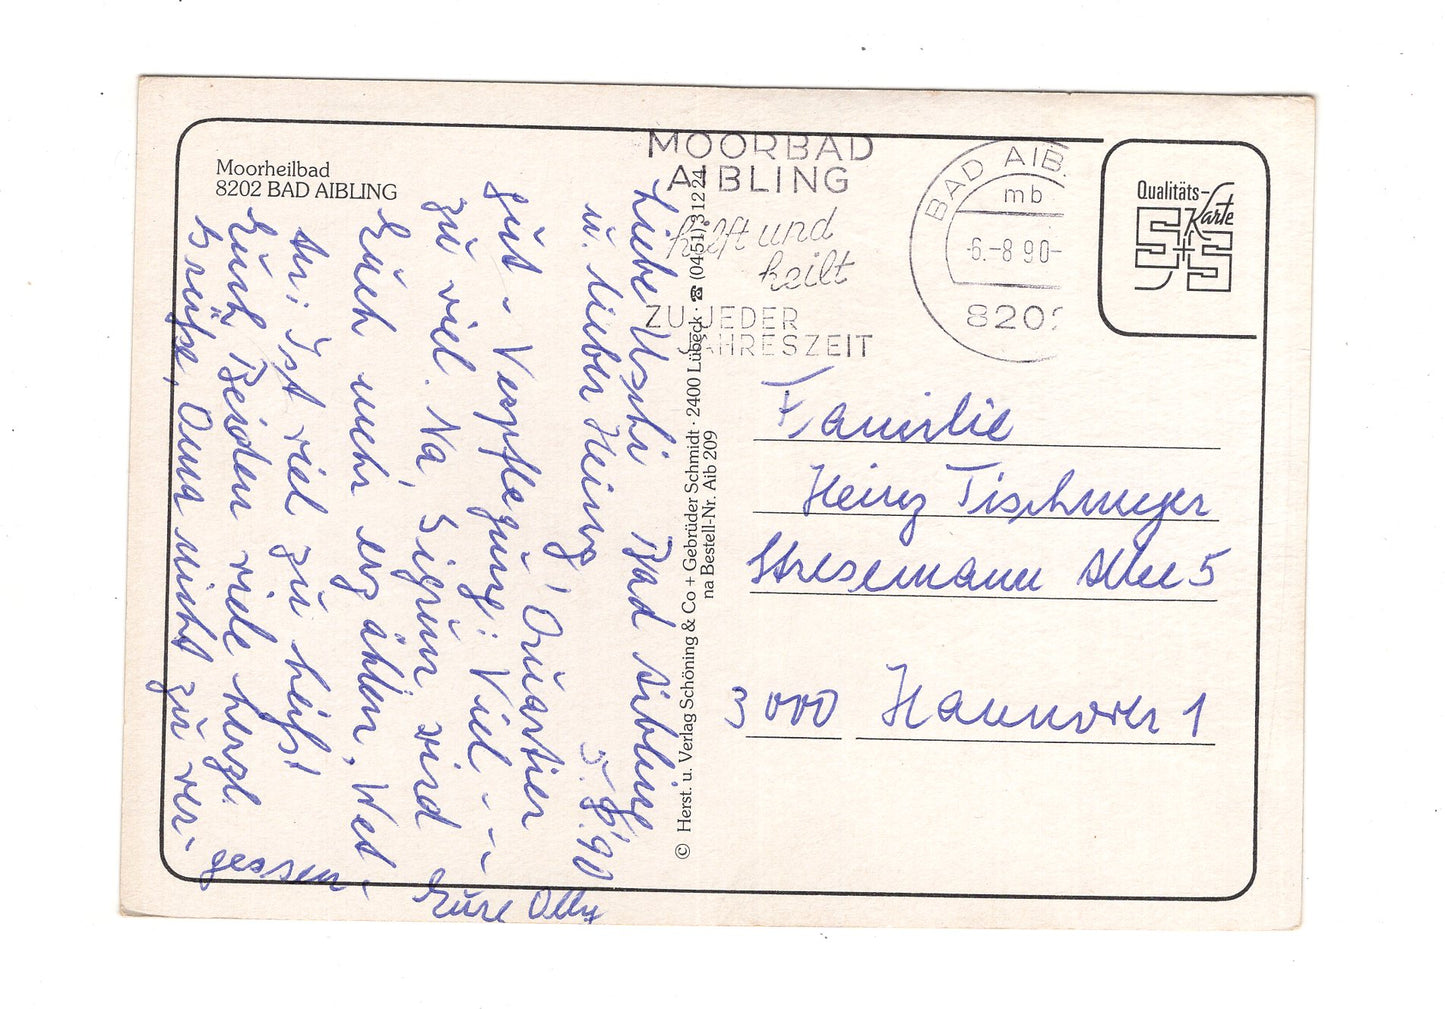 Moorheilbad
8202 BAD AIBLING
MOORBAD
AIBLING
hilft und
heilt
ZU JEDER
JAHRESZEIT
BAD AIB.
mb
-6.-8 90-
8202
Qualitäts-
Karte
S+S
Liebe Uschi Bad Aibling
u. lieber Heinz! 5.8.90
Quartier
gut - Verpflegung: Viel - - -
zu viel. Na, Sigrun wird
Euch mehr erzählen, Wet-
ter: Ist viel zu heiß!
Euch Beiden viele herzl.
Grüße, Oma nicht zu ver-
gessen -
Eure Olly
© Herst. u. Verlag Schöning & Co + Gebrüder Schmidt · 2400 Lübeck · ☎ (0451) 3 12 24
na Bestell-Nr. Aib 209
Familie
Heinz Tischmeyer
Stresemann Allee 5
3000 Hannover 1